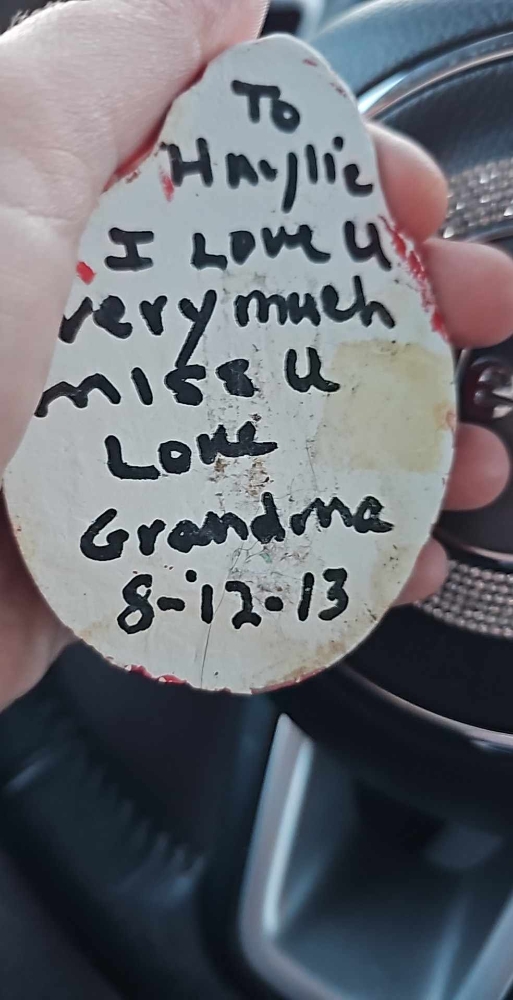 To
Haylie
I Love U
very much
miss U
Love
Grandma
8-12-13